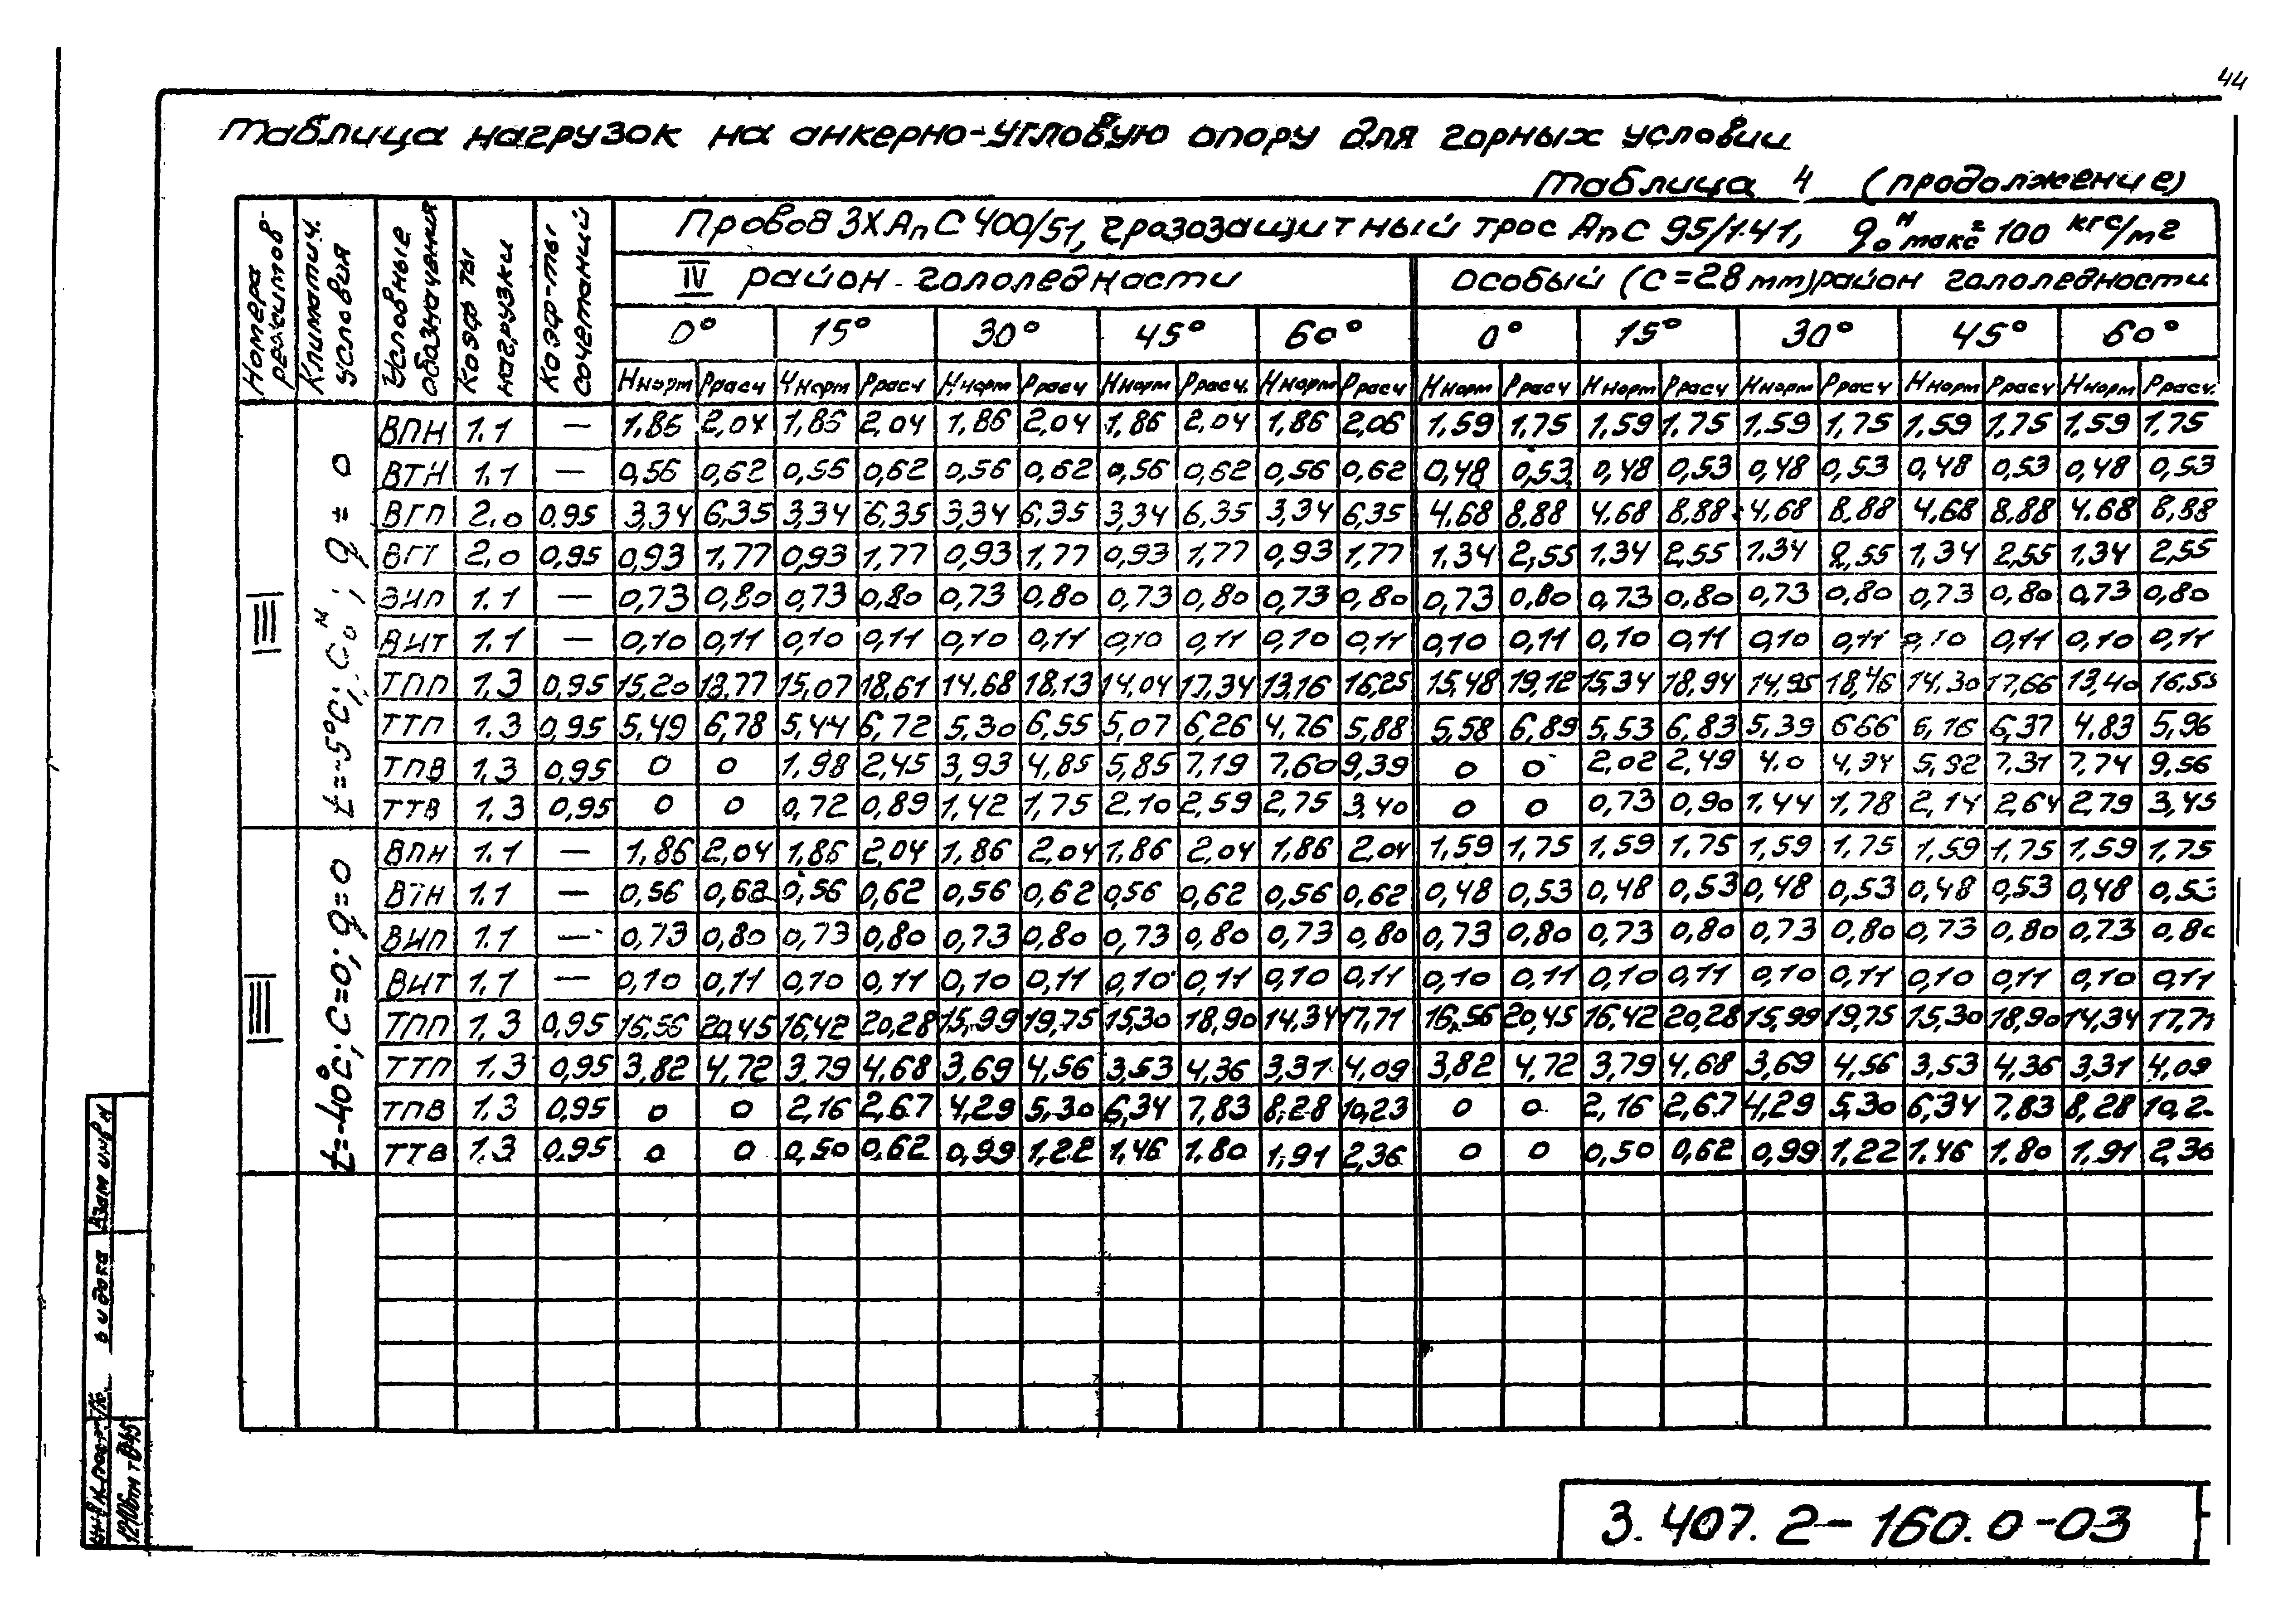 44
Таблица нагрузок на анкерно-угловую опору для горных условий
Таблица 4 (продолжение)
Номера расчетов
Климатич. условия
Условные обозначения
Коэф ты нагрузки
Коэф-ты сочетаний
Провод 3ХАпС 400/51, грозозащитный трос АпС 95/141, q₀ᴴмакс = 100 кгс/м2
IV район гололедности Особый (С=28 мм) район гололедности
0° 15° 30° 45° 60° 0° 15° 30° 45° 60°
Ннорм Ррасч Ннорм Ррасч Ннорм Ррасч Ннорм Ррасч. Ннорм Ррасч Ннорм Ррасч Ннорм Ррасч Ннорм Ррасч Ннорм Ррасч Ннорм Ррасч.
III
t=-5°С; С₀ᴴ; q=0
ВПН 1.1 — 1,86 2,04 1,86 2,04 1,86 2,04 1,86 2,04 1,86 2,06 1,59 1,75 1,59 1,75 1,59 1,75 1,59 1,75 1,59 1,75
ВТН 1.1 — 0,56 0,62 0,56 0,62 0,56 0,62 0,56 0,62 0,56 0,62 0,48 0,53 0,48 0,53 0,48 0,53 0,48 0,53 0,48 0,53
ВГП 2.0 0,95 3,34 6,35 3,34 6,35 3,34 6,35 3,34 6,35 3,34 6,35 4,68 8,88 4,68 8,88 4,68 8,88 4,68 8,88 4,68 8,88
ВГТ 2.0 0,95 0,93 1,77 0,93 1,77 0,93 1,77 0,93 1,77 0,93 1,77 1,34 2,55 1,34 2,55 1,34 2,55 1,34 2,55 1,34 2,55
ВИП 1.1 — 0,73 0,80 0,73 0,80 0,73 0,80 0,73 0,80 0,73 0,80 0,73 0,80 0,73 0,80 0,73 0,80 0,73 0,80 0,73 0,80
ВИТ 1.1 — 0,10 0,11 0,10 0,11 0,10 0,11 0,10 0,11 0,10 0,11 0,10 0,11 0,10 0,11 0,10 0,11 0,10 0,11 0,10 0,11
ТПП 1.3 0,95 15,20 18,77 15,07 18,61 14,68 18,13 14,04 17,34 13,16 16,25 15,48 19,12 15,34 18,94 14,95 18,46 14,30 17,66 13,40 16,55
ТТП 1.3 0,95 5,49 6,78 5,44 6,72 5,30 6,55 5,07 6,26 4,76 5,88 5,58 6,89 5,53 6,83 5,39 6,66 6,37 4,83 5,96
ТПВ 1.3 0,95 0 0 1,98 2,45 3,93 4,85 5,85 7,19 7,60 9,39 0 0 2,02 2,49 4,0 4,94 5,92 7,31 7,74 9,56
ТТВ 1.3 0,95 0 0 0,72 0,89 1,42 1,75 2,10 2,59 2,75 3,40 0 0 0,73 0,90 1,44 1,78 2,14 2,64 2,79 3,45
IIII
t=-40°С; С=0; q=0
ВПН 1.1 — 1,86 2,04 1,86 2,04 1,86 2,04 1,86 2,04 1,86 2,04 1,59 1,75 1,59 1,75 1,59 1,75 1,59 1,75 1,59 1,75
ВТН 1.1 — 0,56 0,62 0,56 0,62 0,56 0,62 0,56 0,62 0,56 0,62 0,48 0,53 0,48 0,53 0,48 0,53 0,48 0,53 0,48 0,53
ВИП 1.1 — 0,73 0,80 0,73 0,80 0,73 0,80 0,73 0,80 0,73 0,80 0,73 0,80 0,73 0,80 0,73 0,80 0,73 0,80 0,73 0,80
ВИТ 1.1 — 0,10 0,11 0,10 0,11 0,10 0,11 0,10 0,11 0,10 0,11 0,10 0,11 0,10 0,11 0,10 0,11 0,10 0,11 0,10 0,11
ТПП 1.3 0,95 16,56 20,45 16,42 20,28 15,99 19,75 15,30 18,90 14,34 17,71 16,56 20,45 16,42 20,28 15,99 19,75 15,30 18,90 14,34 17,71
ТТП 1.3 0,95 3,82 4,72 3,79 4,68 3,69 4,56 3,53 4,36 3,31 4,09 3,82 4,72 3,79 4,68 3,69 4,56 3,53 4,36 3,31 4,09
ТПВ 1.3 0,95 0 0 2,16 2,67 4,29 5,30 6,34 7,83 8,28 10,23 0 0 2,16 2,67 4,29 5,30 6,34 7,83 8,28 10,2
ТТВ 1.3 0,95 0 0 0,50 0,62 0,99 1,22 1,46 1,80 1,91 2,36 0 0 0,50 0,62 0,99 1,22 1,46 1,80 1,91 2,36
Взам инв N
3.407.2-160.0-03